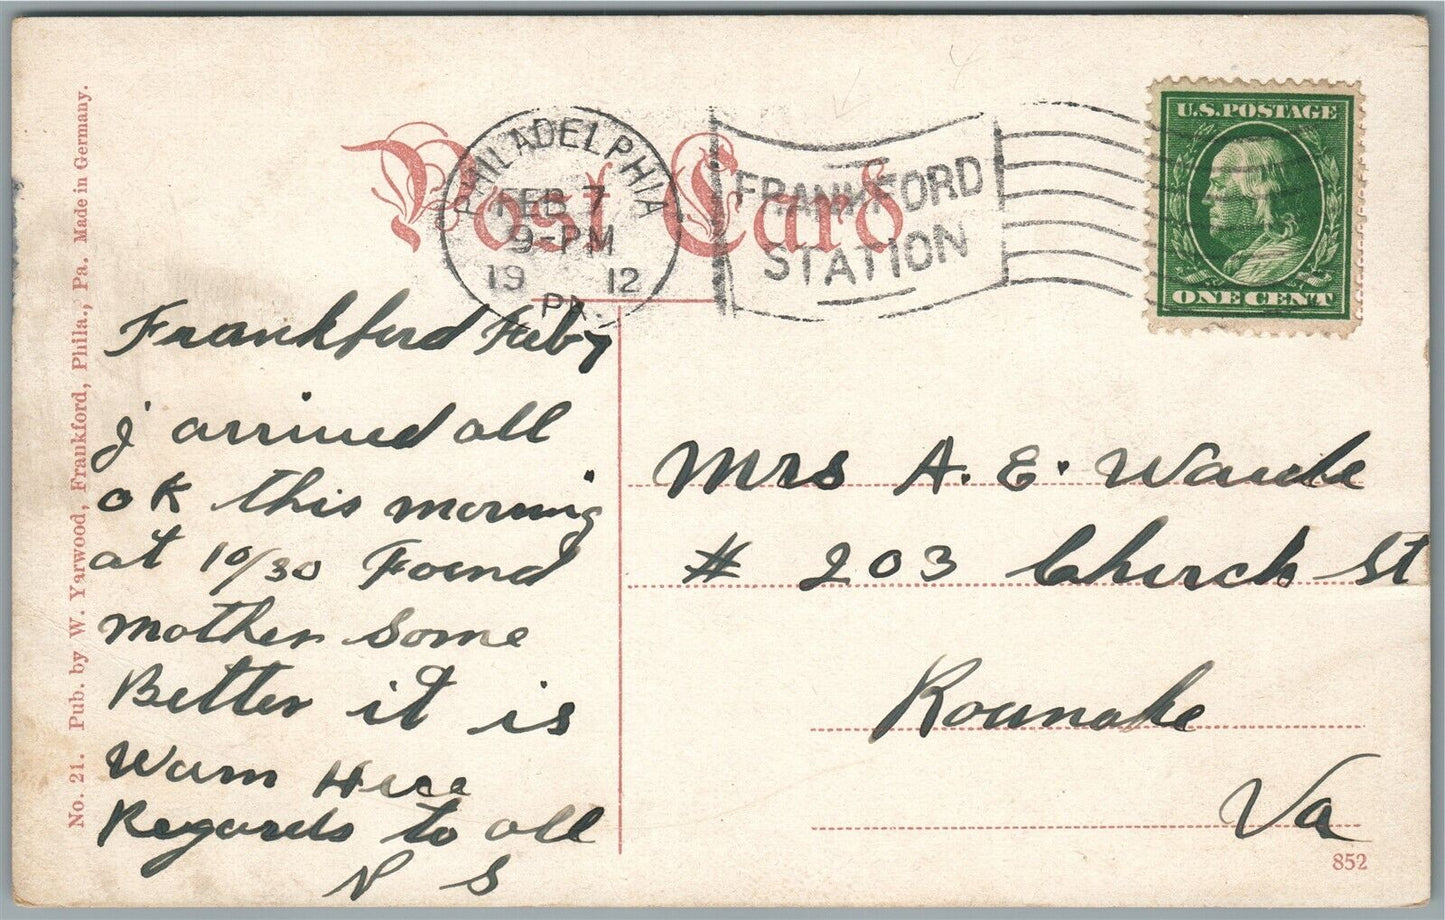 Post Card
PHILADELPHIA
FEB 7
9-PM
19 12
PA.
FRANKFORD
STATION
U.S. POSTAGE
ONE CENT
No. 21. Pub. by W. Yarwood, Frankford, Phila., Pa. Made in Germany.
Frankford Feby
I arrived all
OK this morning
at 10/30 Found
mother some
Better it is
Warm Here
Regards to all
N S
Mrs A. E. Waide
# 203 Church St
Rounoke
Va
852